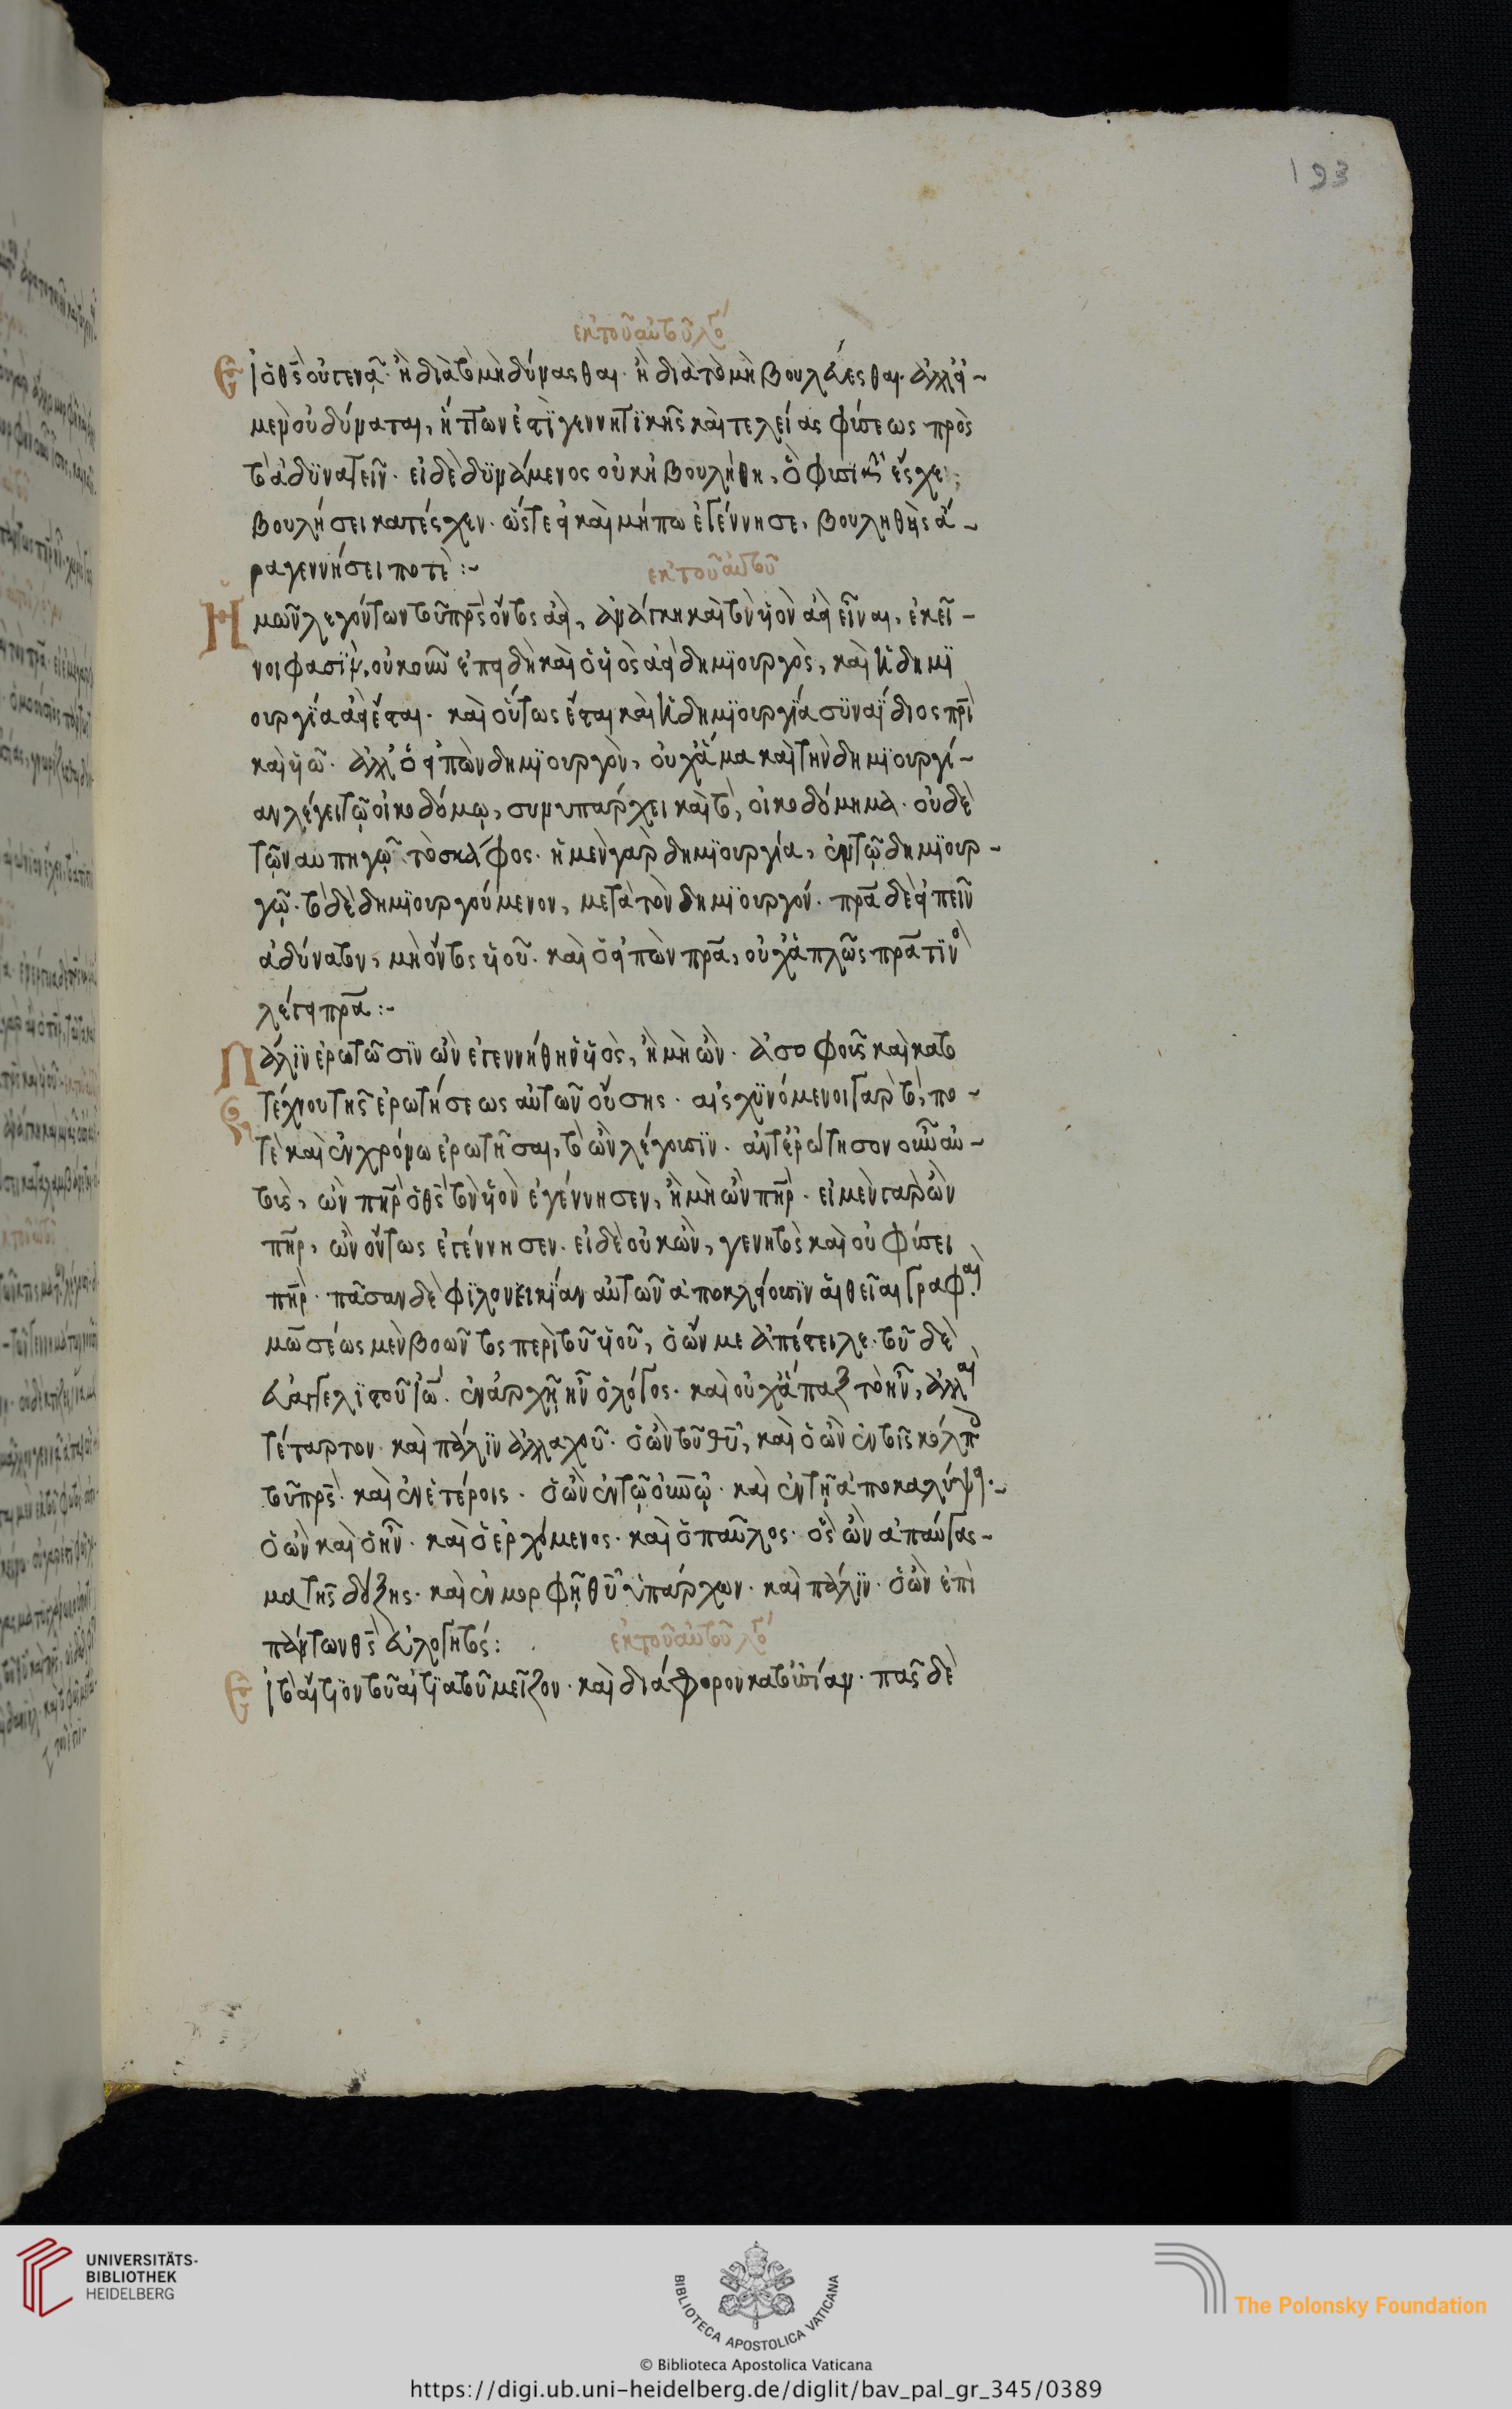 193
ἐκ τοῦ αὐτοῦ λό
Εἰ ὁ θς̅ οὐ γεννᾷ· ἢ διὰ τὸ μὴ δύνασθαι· ἢ διὰ τὸ μὴ βούλεσθαι· ἀλλ' εἰ
μὲν οὐ δύναται, ἥττων ἐστὶ γεννητικῆς καὶ τελείας φύσεως πρὸς
τὸ ἀδυνατεῖν· εἰ δὲ δυνάμενος οὐκ ἠβουλήθη, ὃ φυσικῶς ἔσχε,
βουλήσει κατέσχεν· ὥστε εἰ καὶ μήπω ἐγέννησε, βουληθεὶς ἄ
ρα γεννήσει ποτέ :~
ἐκ τοῦ αὐτοῦ
Ἡμῶν λεγόντων τοῦ πρς̅ ὄντος ἀεὶ, ἀνάγκη καὶ τὸν υἱὸν ἀεὶ εἶναι, ἐκεῖ
νοι φασὶν, οὐκοῦν ἐπειδὴ καὶ ὁ υἱὸς ἀεὶ δημιουργὸς, καὶ ἡ δημι
ουργία ἀεὶ ἔσται· καὶ οὕτως ἔσται καὶ ἡ δημιουργία συναΐδιος πρι̅
καὶ υἱῷ· ἀλλ' ὁ εἰπὼν δημιουργὸν, οὐχ ἅμα καὶ τὴν δημιουργί
αν λέγει τῷ οἰκοδόμῳ, συμυπάρχει καὶ τὸ, οἰκοδόμημα· οὐδὲ
τῷ ναυπηγῷ τὸ σκάφος· ἡ μὲν γὰρ δημιουργία, ἐν τῷ δημιουρ
γῷ· τὸ δὲ δημιουργούμενον, μετὰ τὸν δημιουργόν· πρα̅ δὲ εἰπεῖν
ἀδύνατον, μὴ ὄντος υἱοῦ· καὶ ὁ εἰπὼν πρα̅, οὐχ ἁπλῶς πρα̅ τινὸ
λέγει πρα̅ :~
Πάλιν ἐρωτῶσιν ὢν ἐγεννήθη ὁ υἱὸς, ἢ μὴ ὤν· ἀσόφου καὶ κατο
τέχνου τῆς ἐρωτήσεως αὐτῶν οὔσης· αἰσχυνόμενοι γὰρ τὸ, πο
τὲ καὶ ἐν χρόνω ἐρωτῆσαι, τὸ ὢν λέγουσιν· ἀντερώτησον οὖν αὐ
τοὺς, ὢν πηρ̅ ὁ θς̅ τὸν υἱὸν ἐγέννησεν, ἢ μὴ ὢν πηρ̅· εἰ μὲν γὰρ ὢν
πηρ̅, ὢν ὄντως ἐγέννησεν· εἰ δὲ οὐκ ὢν, γενητὸς καὶ οὐ φύσει
πηρ̅· πᾶσαν δὲ φιλονεικίαν αὐτῶν ἀποκλείουσιν αἱ θεῖαι γραφαὶ
μωσέως μὲν βοῶντος περὶ τοῦ υἱοῦ, ὁ ὤν με ἀπέστειλε· τοῦ δὲ
εὐαγγελιστοῦ ἰω̅· ἐν ἀρχῇ ἦν ὁ λόγος· καὶ οὐχ ἅπαξ τὸ ἦν, ἀλλὰ
τέταρτον· καὶ πάλιν ἀλλαχοῦ· ὁ ὢν τοῦ θυ̅, καὶ ὁ ὢν ἐν τοῖς κόλποις
τοῦ πρς̅· καὶ ἐν ἑτέροις· ὁ ὢν ἐν τῷ οὐνῷ· καὶ ἐν τῇ ἀποκαλύψει·~
ὁ ὢν καὶ ὁ ἦν· καὶ ὁ ἐρχόμενος· καὶ ὁ παῦλος· ὃς ὢν ἀπαύγασ
μα τῆς δόξης· καὶ ἐν μορφῇ θυ̅ ὑπάρχων· καὶ πάλιν· ὁ ὢν ἐπὶ
πάντων θς̅ εὐλογητός :
ἐκ τοῦ αὐτοῦ λό
Εἰ τὸ αἴτιον τοῦ αἰτιατοῦ μεῖζον· καὶ διάφορον κατ' οὐσίαν· πᾶς δὲ
UNIVERSITÄTS-
BIBLIOTHEK
HEIDELBERG
BIBLIOTECA APOSTOLICA VATICANA
The Polonsky Foundation
© Biblioteca Apostolica Vaticana
https://digi.ub.uni-heidelberg.de/diglit/bav_pal_gr_345/0389